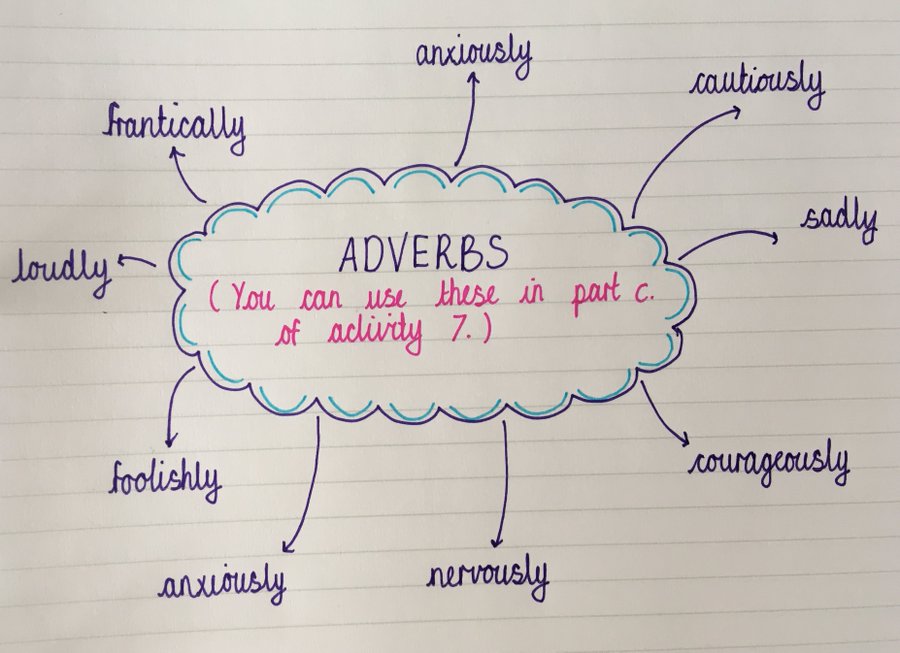 anxiously
cautiously
frantically
sadly
loudly
ADVERBS
(You can use these in part c.
of activity 7.)
foolishly
courageously
anxiously
nervously